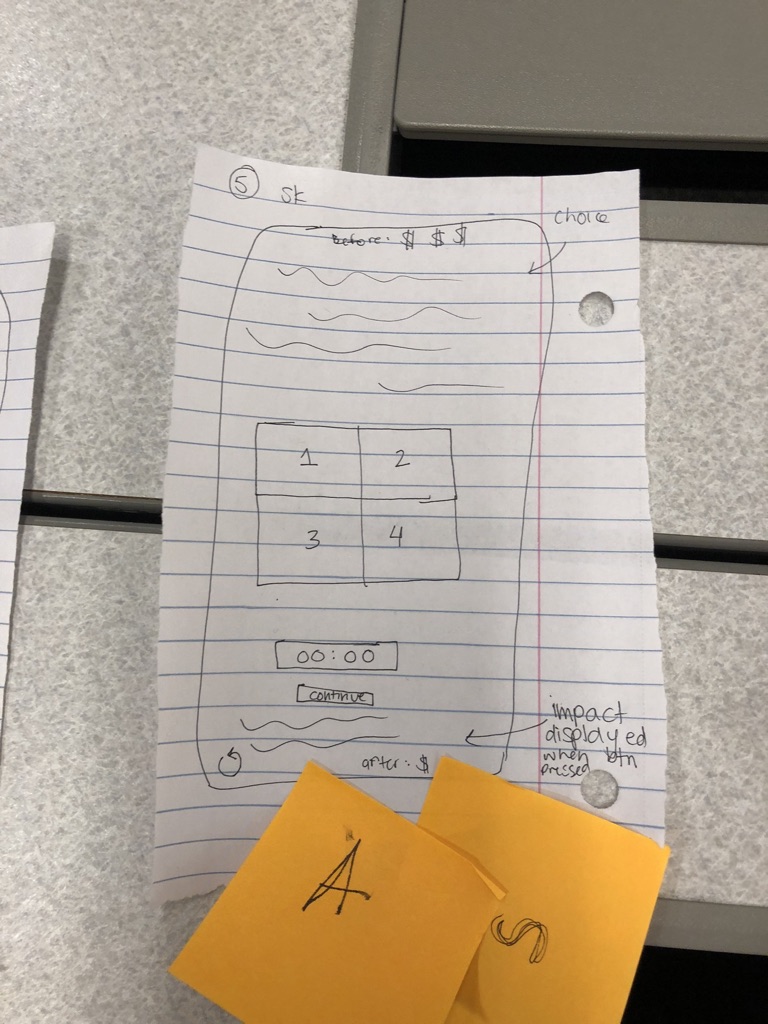 5 SK
choice
before: $ $ $
1 2
3 4
00:00
continue
impact
displayed
when btn
pressed
after: $
A
S